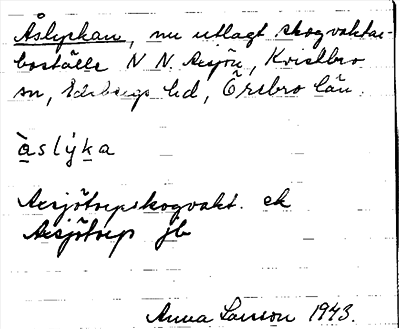 Åslyckan, nu utlagt skogvaktar-
boställe N N. Aisjön, Kvistbro
sn, Edsbergs hd, Örebro län.
àslýka
Aisjötorpskogvakt. ek
Aisjötorp jb
Anna Larsson 1943.